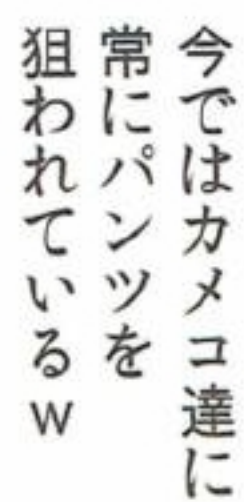 今ではカメコ達に
常にパンツを
狙われているw